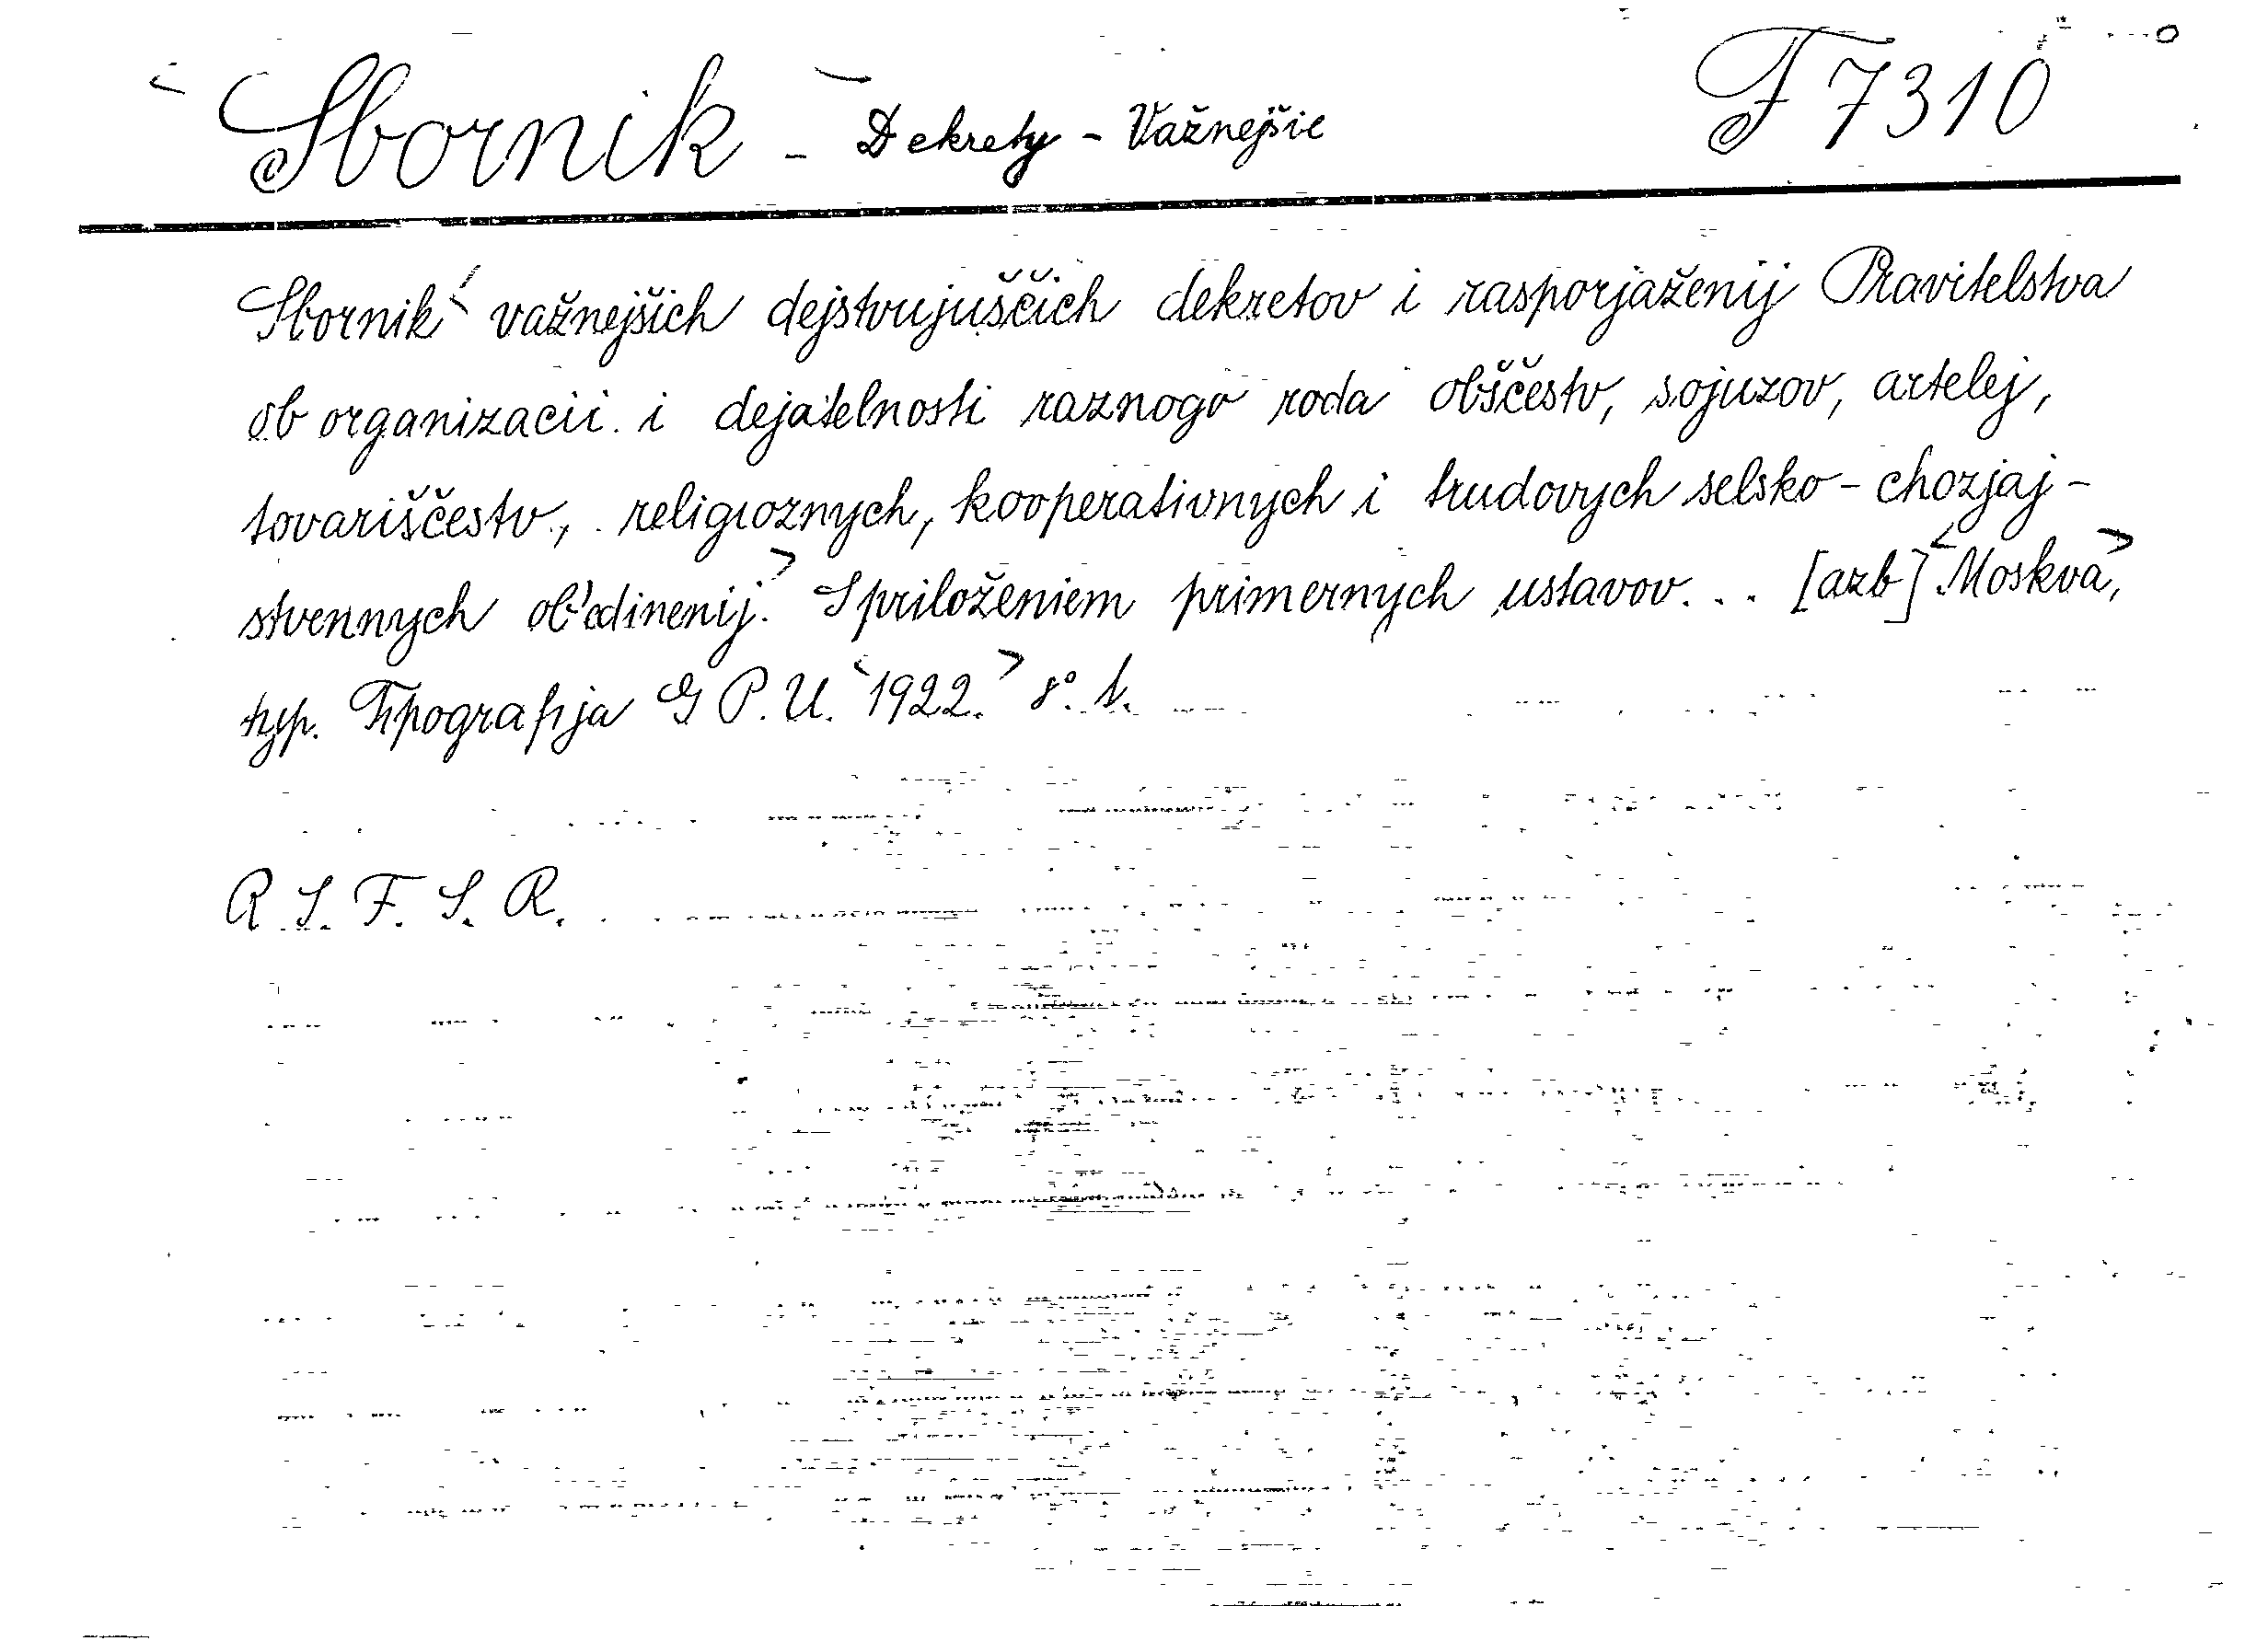 Sbornik - Dekrety - Važnejšie F 7310
Sbornik važnejšich dejstvujuščich dekretov i rasporjaženij Pravitelstva
ob organizacii i dejatelnosti raznogo roda obščestv, sojuzov, artelej,
tovariščestv, religioznych, kooperativnych i trudovych selsko-chozjaj-
stvennych ob'edinenij. S priloženiem primernych ustavov... [azb] <Moskva>,
typ. Tipografija G P.U. <1922.> 8°.
R. S. F. S. R.